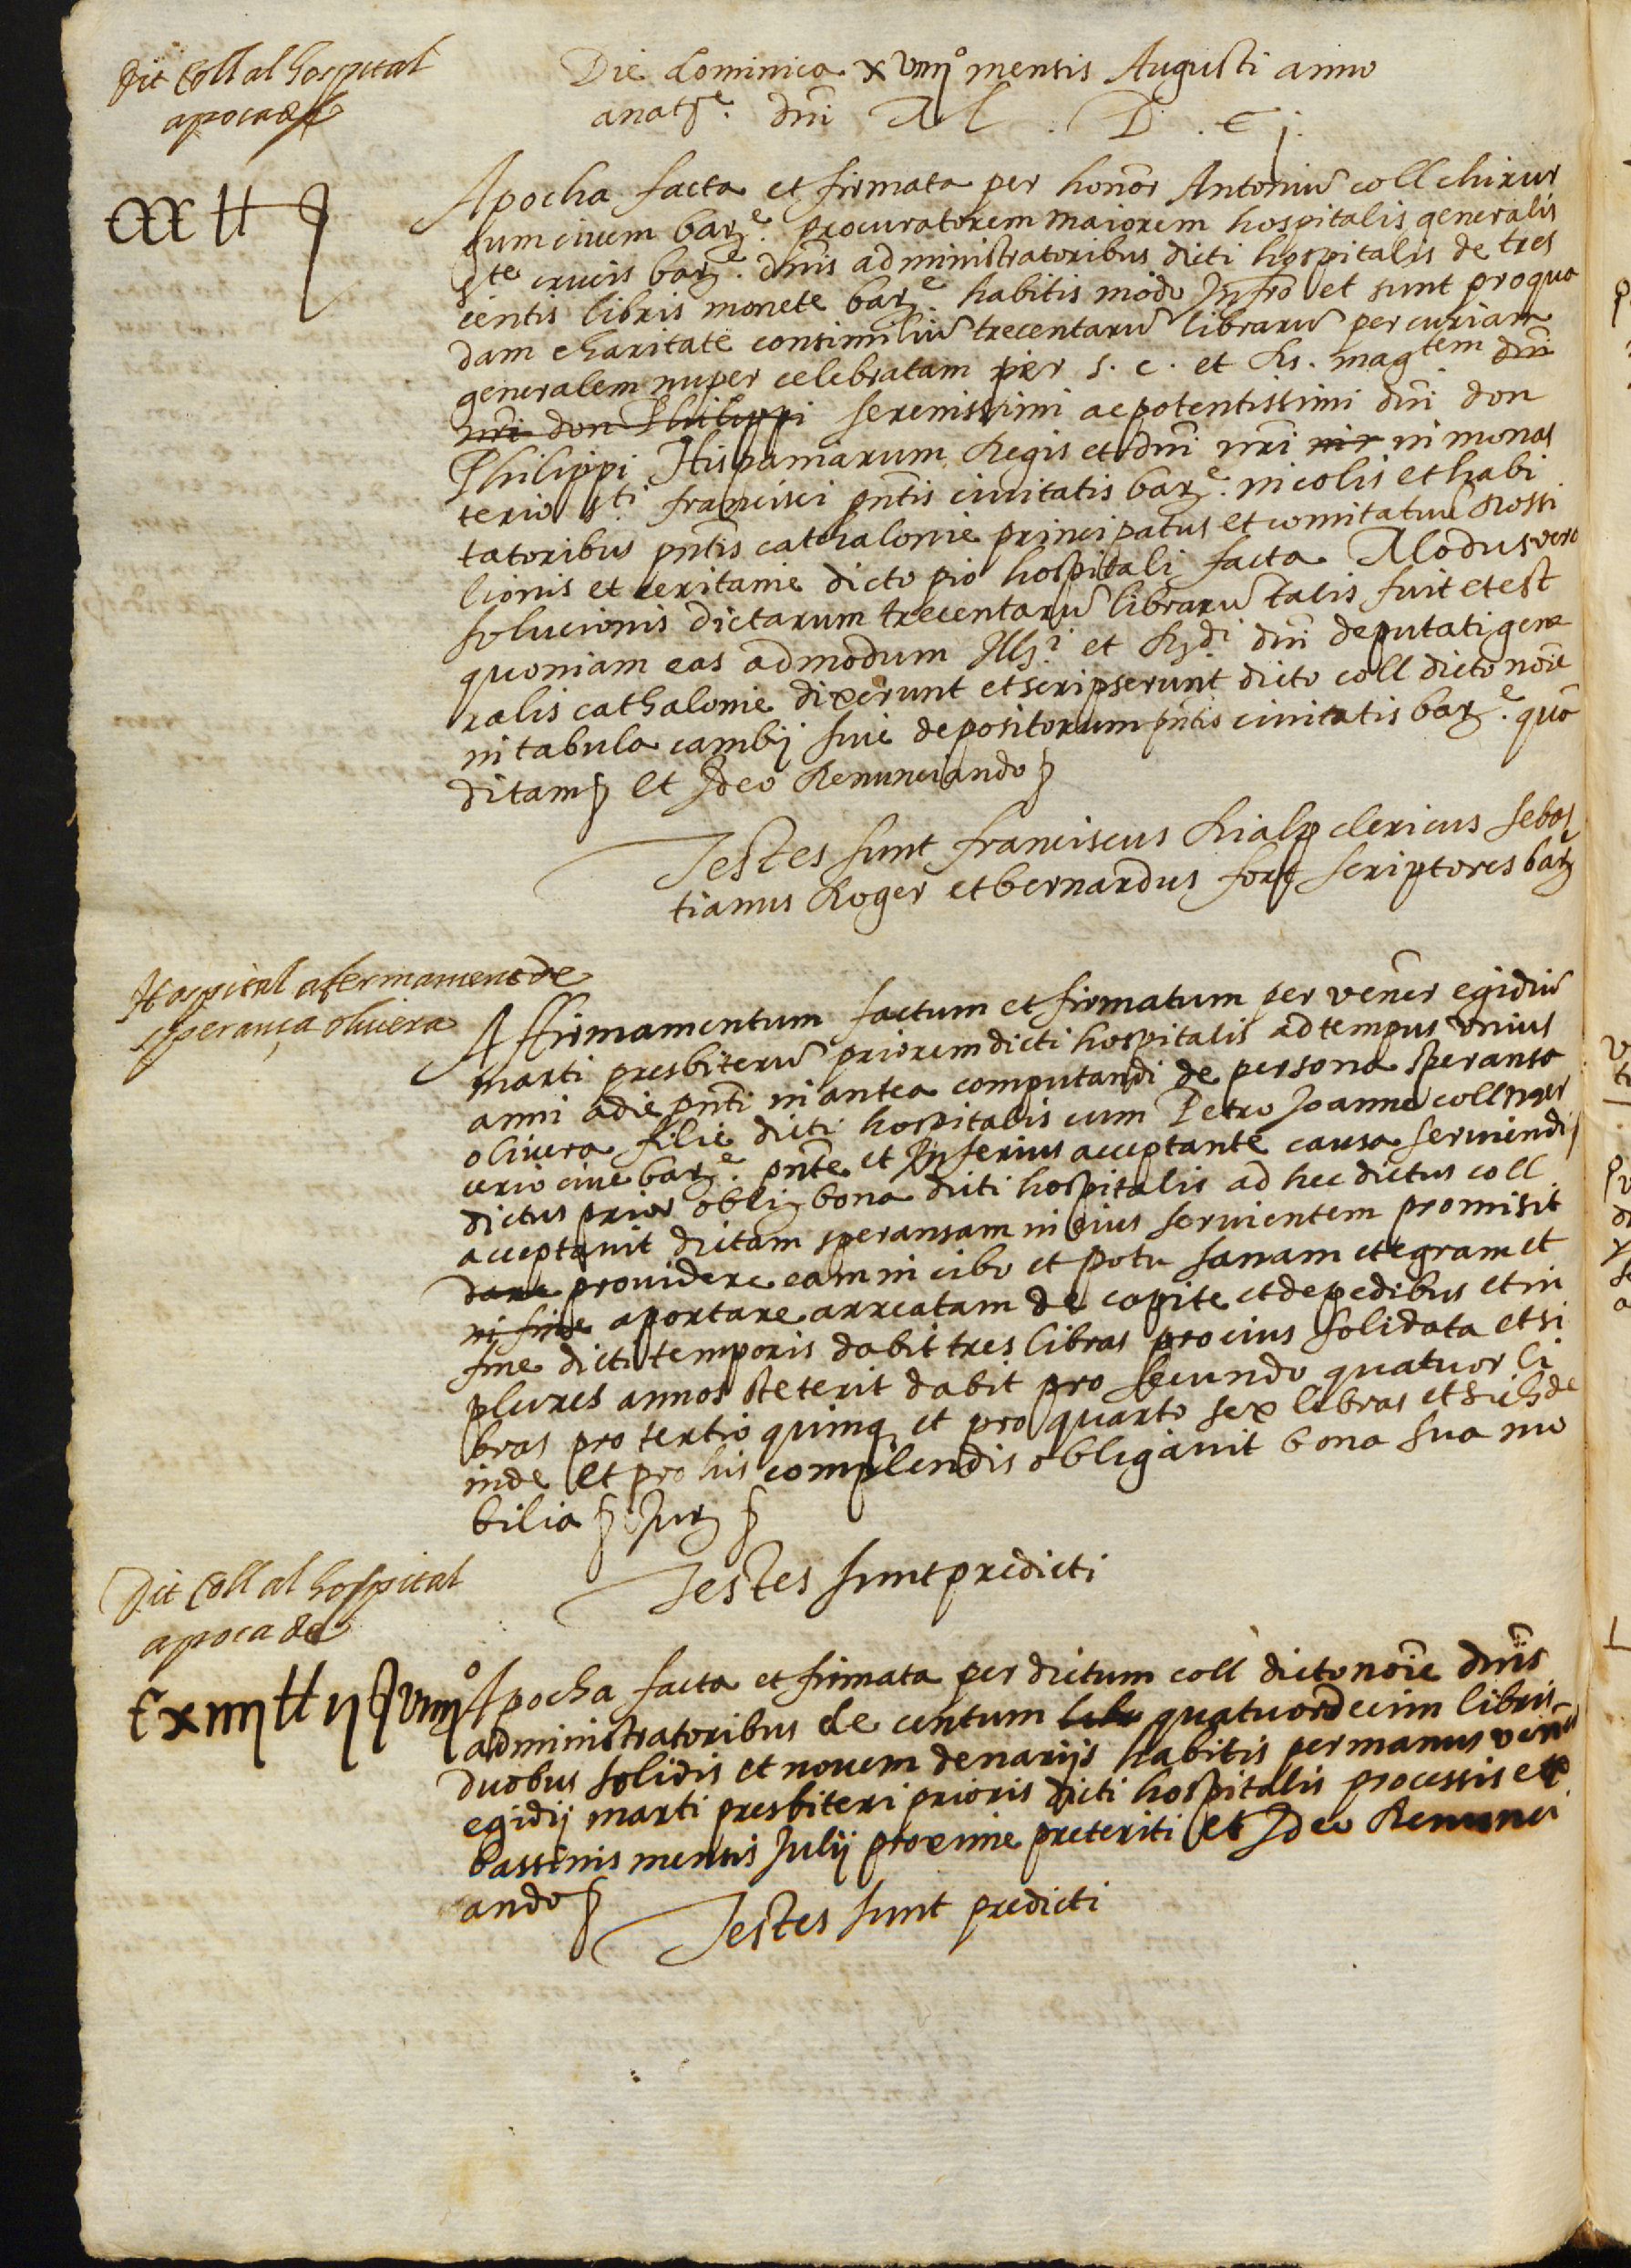 Dit Coll al hospital
apoca de
Die dominica xviiij° mensis Augusti anno
anatte. dni M . D . C j.
ccc ll s
Apocha facta et firmata per honor Antoniu coll chirur
cum civem barᵉ. procuratorem maiorem hospitalis generalis
Ste crucis barᵉ. dnis administratoribus dicti hospitalis de tres
centis libris monete barᵉ. habitis modo Infro et sunt pro qua
dam charitate consimiliu trecentaru libraru per curiam
generalem nuper celebratam per s. c. et Rs. magtem dni
nri don Philippi serenissimi ac potentissimi dni don
Philippi Hispaniarum Regis et dni nri in monas
terio sti francisci pntis civitatis barᵉ. incolis et habi
tatoribus pntis cathalonie principatus et comitatuu Rossi
lionis et ceritanie dicto pio hospitali facta Modus vero
solucionis dictarum trecentaru libraru talis fuit et est
quoniam eas admodum Ills.i et Rdi dni deputati gene
ralis cathalonie dixerunt et scripserunt dicto coll dicto noie
in tabula cambij sive depositorum pntis civitatis barᵉ. quo
ditam et Ideo Renunciando
Testes sunt franciscus Rialp clericus Sebas
tianus Roger et bernardus fort scriptores barᵉ
Hospital afermament de
sperança olivera
Affirmamentum factum et firmatum per vener egidiu
marti presbiteru priorem dicti hospitalis ad tempus unius
anni a die pnti in antea computandi de persona speransa
olivera filie dicti hospitalis cum Petro Joanne coll mer
cerio cive barᵉ. pnte et Inferius acceptante causa serviendi
dictus prior oblig bona dicti hospitalis ad hec dictus coll
acceptavit dictam speransam in eius servientem promisit
dare providere eam in cibo et potu sanam et egram et
in fine aportare arreatam de capite et de pedibus et in
fine dicti temporis dabit tres libras pro eius solidata et si
plures annos steterit dabit pro secundo quatuor li
bras pro tertio quinq et pro quarto sex libras et sic de
inde et pro his complendis obligavit bona sua mo
bilia Jur
Testes sunt predicti
Dit Coll al hospital
apoca de
Cxiiij ll ij s viiij°
Apocha facta et firmata per dictum coll dicto noie dnis
administratoribus de centum libr quatuordecim libris
duobus solidis et novem denarijs habitis per manus ven
egidij marti presbiteri prioris dicti hospitalis processis ex
bassinis mensis Julij proxime preteriti et Ideo Renunci
ando
Testes sunt predicti